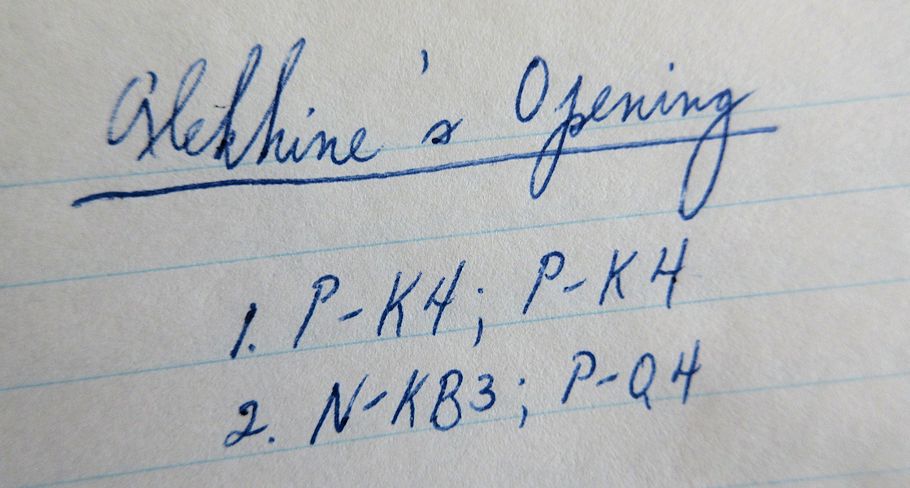 Alekhine's Opening
1. P-K4; P-K4
2. N-KB3; P-Q4